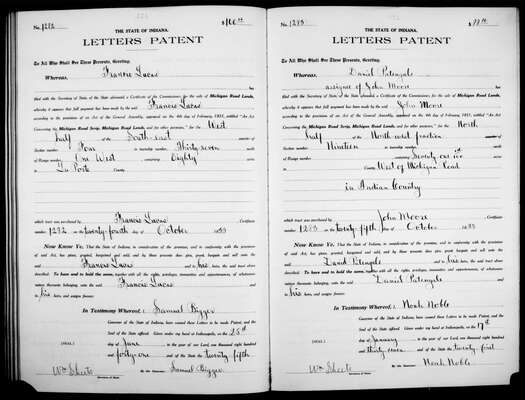 No. 1292 $100.00
THE STATE OF INDIANA.
LETTERS PATENT
To All Who Shall See These Presents, Greeting:
Whereas, Francis Lucas
has
filed with the Secretary of State, of the State aforesaid, a Certificate of the Commissioner for the sale of Michigan Road Lands,
whereby it appears that full payment has been made by the said Francis Lucas
according to the provision of an Act of the General Assembly, approved on the 4th day of February, 1831, entitled "An Act
Concerning the Michigan Road Scrip, Michigan Road Lands, and for other purposes," for the West
half of the South-east quarter of
Section number Four in township Thirty seven north
of Range number One West containing Eighty acres in
La Porte County
which tract was purchased by Francis Lucas Certificate
number 1292 on the twenty fourth day of October 1833
NOW KNOW YE, That the State of Indiana, in consideration of the premises, and in conformity with the provisions
of said Act, has given, granted, bargained and sold, and by these presents does give, grant, bargain and sell unto the
said Francis Lucas and to his heirs, the said tract above
described, To have and to hold the same, together with all the rights, privileges, immunities and appurtenances, of whatsoever
nature thereunto belonging, unto the said Francis Lucas and
to his heirs, and assigns forever.
In Testimony Whereof, I Samuel Bigger
Governor of the State of Indiana, have caused these Letters to be made Patent, and the
Seal of the State affixed. Given under my hand at Indianapolis, on the 25th
(SEAL) day of June in the year of our Lord, one thousand eight hundred
and forty-one and of the State the twenty fifth.
By the Governor: Samuel Bigger
Wm Sheets
Secretary of State.
No. 1293
THE STATE OF INDIANA.
LETTERS PATENT
To All Who Shall See These Presents, Greeting:
Whereas, Daniel
assignee of John Moore has
filed with the Secretary of State, of the State aforesaid, a Certificate of the Commissioner for the sale of Michigan Road Lands,
whereby it appears that full payment has been made by the said John Moore
according to the provision of an Act of the General Assembly, approved on the 4th day of February, 1831, entitled "An Act
Concerning the Michigan Road Scrip, Michigan Road Lands, and for other purposes," for the North
half of the North west fraction of
Section number Nineteen in township north
of Range number containing Seventy one acres in
County West of Michigan Road
in Indian Country
which tract was purchased by John Moore Certificate
number 1293 on the twenty fifth day of October 1833
NOW KNOW YE, That the State of Indiana, in consideration of the premises, and in conformity with the provisions
of said Act, has given, granted, bargained and sold, and by these presents does give, grant, bargain and sell unto the
said David and to his heirs, the said tract above
described, To have and to hold the same, together with all the rights, privileges, immunities and appurtenances, of whatsoever
nature thereunto belonging, unto the said Daniel and
to his heirs, and assigns forever.
In Testimony Whereof, I Noah Noble
Governor of the State of Indiana, have caused these Letters to be made Patent, and the
Seal of the State affixed. Given under my hand at Indianapolis, on the 17th
(SEAL) day of January in the year of our Lord, one thousand eight hundred
and thirty seven and of the State the twenty first
By the Governor: Noah Noble
Wm Sheets
Secretary of State.